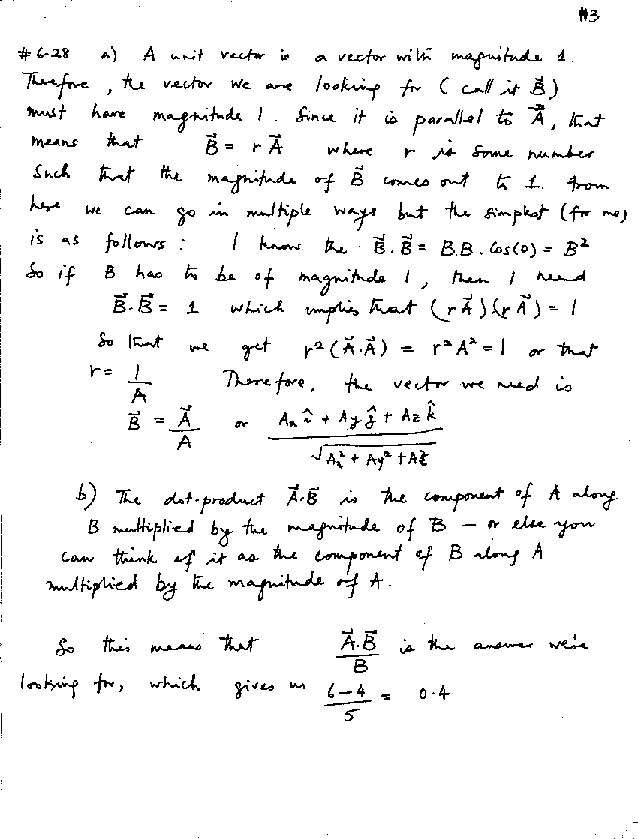 #3
# 6-28 a) A unit vector is a vector with magnitude 1.
Therefore, the vector we are looking for (call it B⃗)
must have magnitude 1. Since it is parallel to A⃗, that
means that B⃗ = r A⃗ where r is some number
such that the magnitude of B⃗ comes out to 1. From
here we can go in multiple ways but the simplest (for me)
is as follows: I know the B⃗.B⃗ = B.B.Cos(0) = B²
So if B has to be of magnitude 1, then I need
B⃗.B⃗ = 1 which implies that (rA⃗)(rA⃗) = 1
So that we get r²(A⃗.A⃗) = r²A² = 1 or that
r = 1/A Therefore, the vector we need is
B⃗ = A⃗/A or (Axî + Ayĵ + Azk̂)/√(Ax² + Ay² + Az²)
b) The dot-product A⃗.B⃗ is the component of A along
B multiplied by the magnitude of B – or else you
can think of it as the component of B along A
multiplied by the magnitude of A.
So this means that A⃗.B⃗/B is the answer we're
looking for, which gives us (6-4)/5 = 0.4